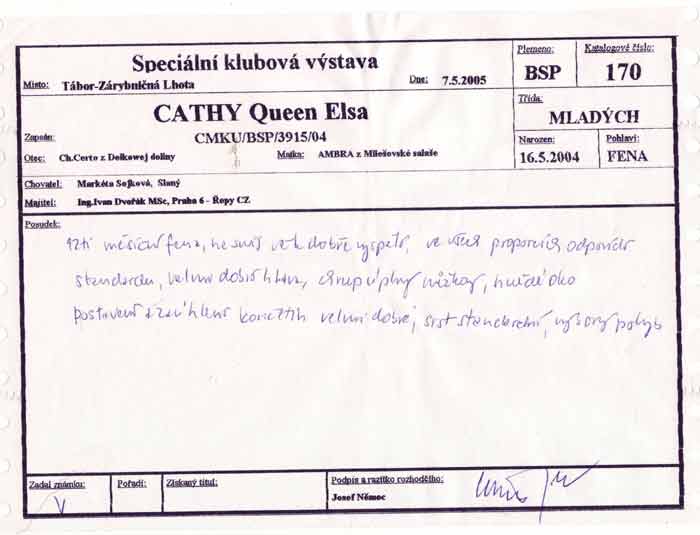 Speciální klubová výstava
Plemeno: BSP
Katalogové číslo: 170
Místo: Tábor-Zárybničná Lhota
Dne: 7.5.2005
CATHY Queen Elsa
Třída: MLADÝCH
Zapsán: CMKU/BSP/3915/04
Narozen: 16.5.2004
Pohlaví: FENA
Otec: Ch.Certo z Dolkowej doliny
Matka: AMBRA z Milešovské salaše
Chovatel: Markéta Sojková, Slaný
Majitel: Ing.Ivan Dvořák MSc, Praha 6 - Řepy CZ
Posudek:
měsíční fena, na svůj věk dobře vyspělá, ve všech proporcích odpovídá
standardu, velmi dobrá hlava, chrup úplný nůžkový, hnědé oko
postavení a zaúhlení končetin velmi dobré, srst standardní, výborný pohyb
Zadal známku: V
Pořadí:
Získaný titul:
Podpis a razítko rozhodčího:
Josef Němec